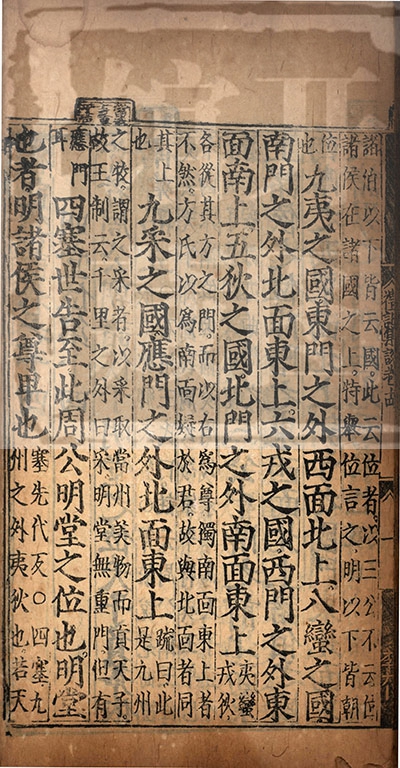 禮記集說卷
諸伯以下皆云國此云位者以三公不云位
諸侯在諸國之上特舉位言之明以下皆朝
位也九夷之國東門之外西面北上八蠻之國
南門之外北面東上六戎之國西門之外東
面南上五狄之國北門之外南面東上夷蠻戎狄
各從其方之門而以右爲尊獨南面東上者
不然方氏以爲南面疑於君故與北面者同
其上也九采之國應門之外北面東上疏曰此是九州
之牧謂之采者以采取當州美物而貢天子
故王制云千里之外曰采明堂無重門但有
應門耳四塞世告至此周公明堂之位也明堂
也者明諸侯之尊卑也塞先代反○四塞九州之外夷狄也若天